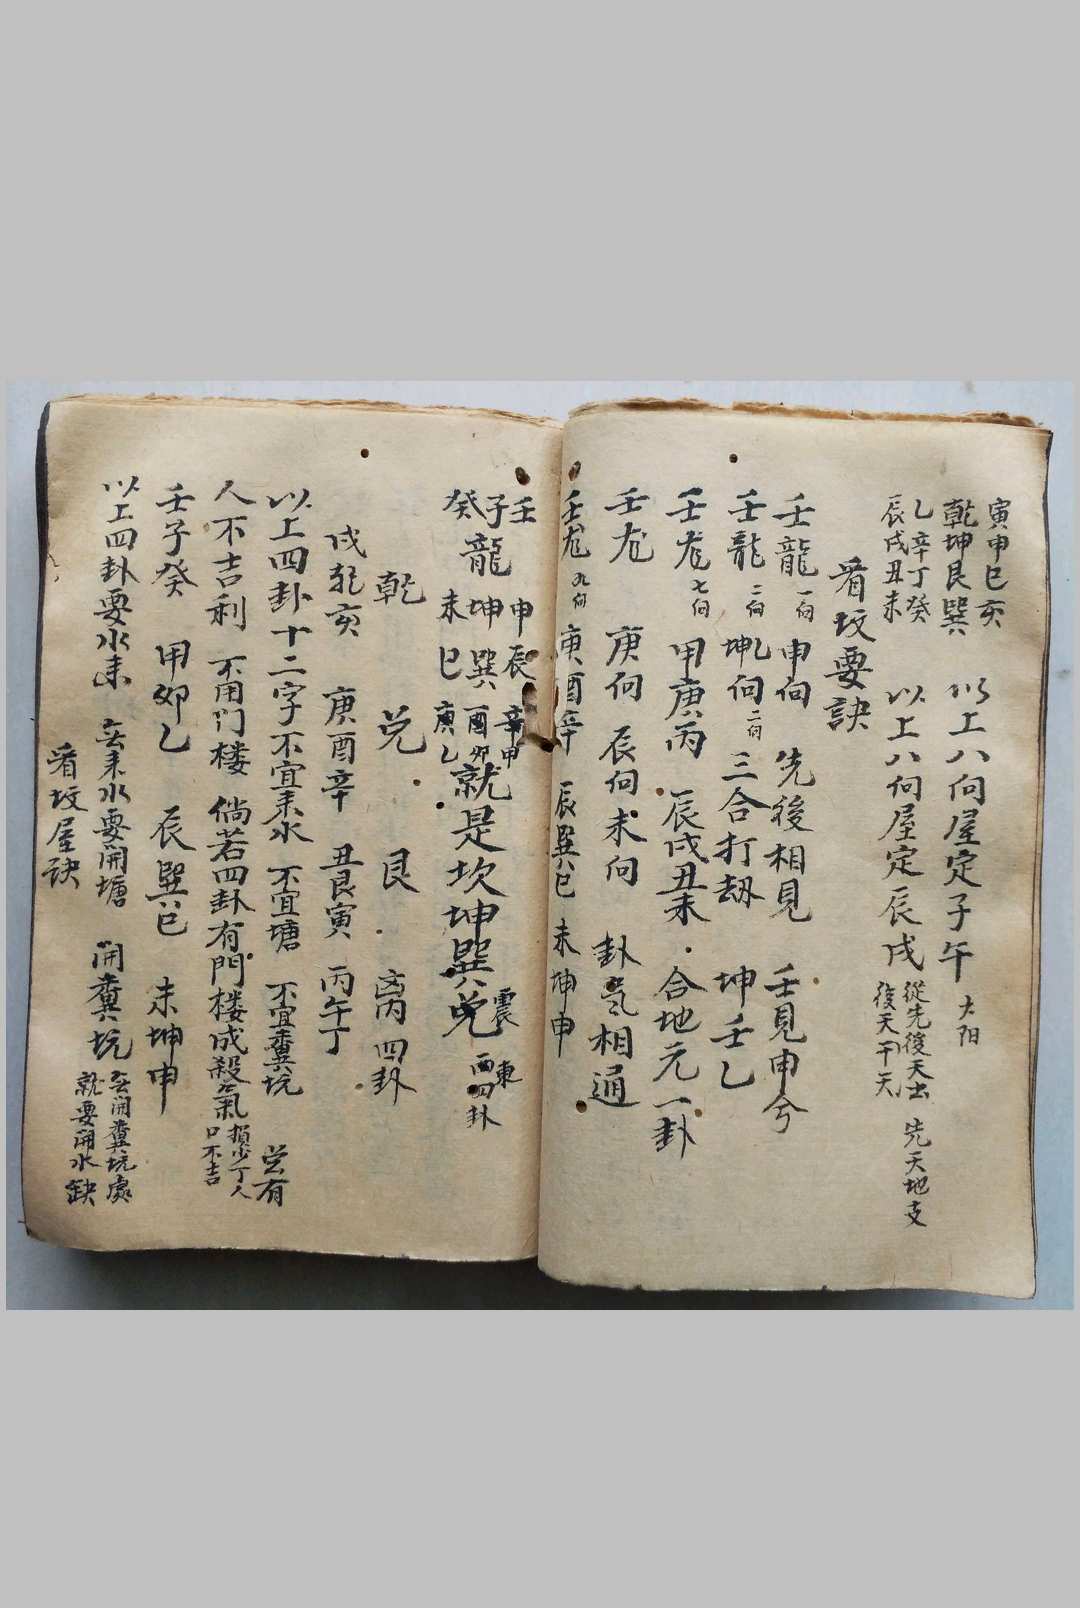 寅申巳亥
乾坤艮巽 以上八向屋定子午 太阳
乙辛丁癸
辰戌丑未 以上八向屋定辰戌 從先後天出 先天地支
後天干天
看坟要訣
壬龍 一向 申向 先後相見 壬見申兮
壬龍 二向 坤乙向 二向 三合打劫 坤壬乙
壬龙 七向 甲庚丙 辰戌丑未 合地元一卦
壬龙 庚向 辰向未向 卦氣相通
壬龙 九向 庚酉辛 辰巽巳 未坤申
壬 申辰 辛甲
子龍 坤巽 酉卯 就是坎坤巽兑 震 東
癸 未巳 庚乙 西四卦
乾 兑 艮 离丙四卦
戌乾亥 庚酉辛 丑艮寅 丙午丁
以上四卦十二字不宜来水 不宜塘 不宜糞坑 若有
人不吉利 不用门楼 倘若四卦有門楼成殺氣 損少丁人
口不吉
壬子癸 甲卯乙 辰巽巳 未坤申
以上四卦要水来 無来水要開塘 開糞坑 無開糞坑處
就要開水缺
看坟屋訣